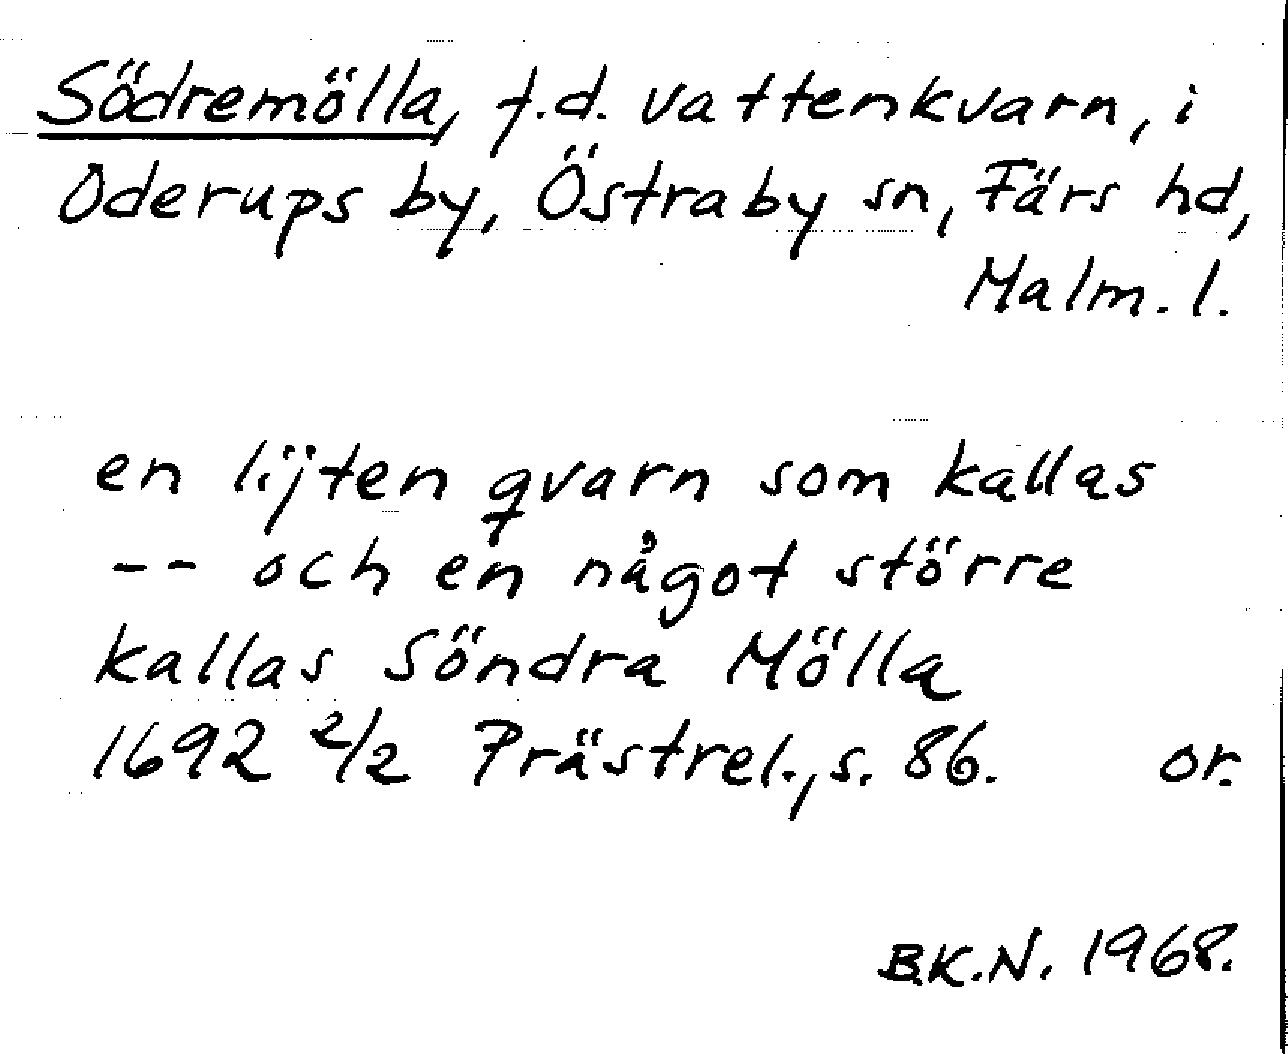 Södremölla, f.d. vattenkvarn, i
Oderups by, Östraby sn, Färs hd,
Malm. l.
en lijten qvarn som kallas
-- och en något större
kallas Söndra Mölla
1692 2/2 Prästrel., s. 86. or.
B.K.N. 1968.